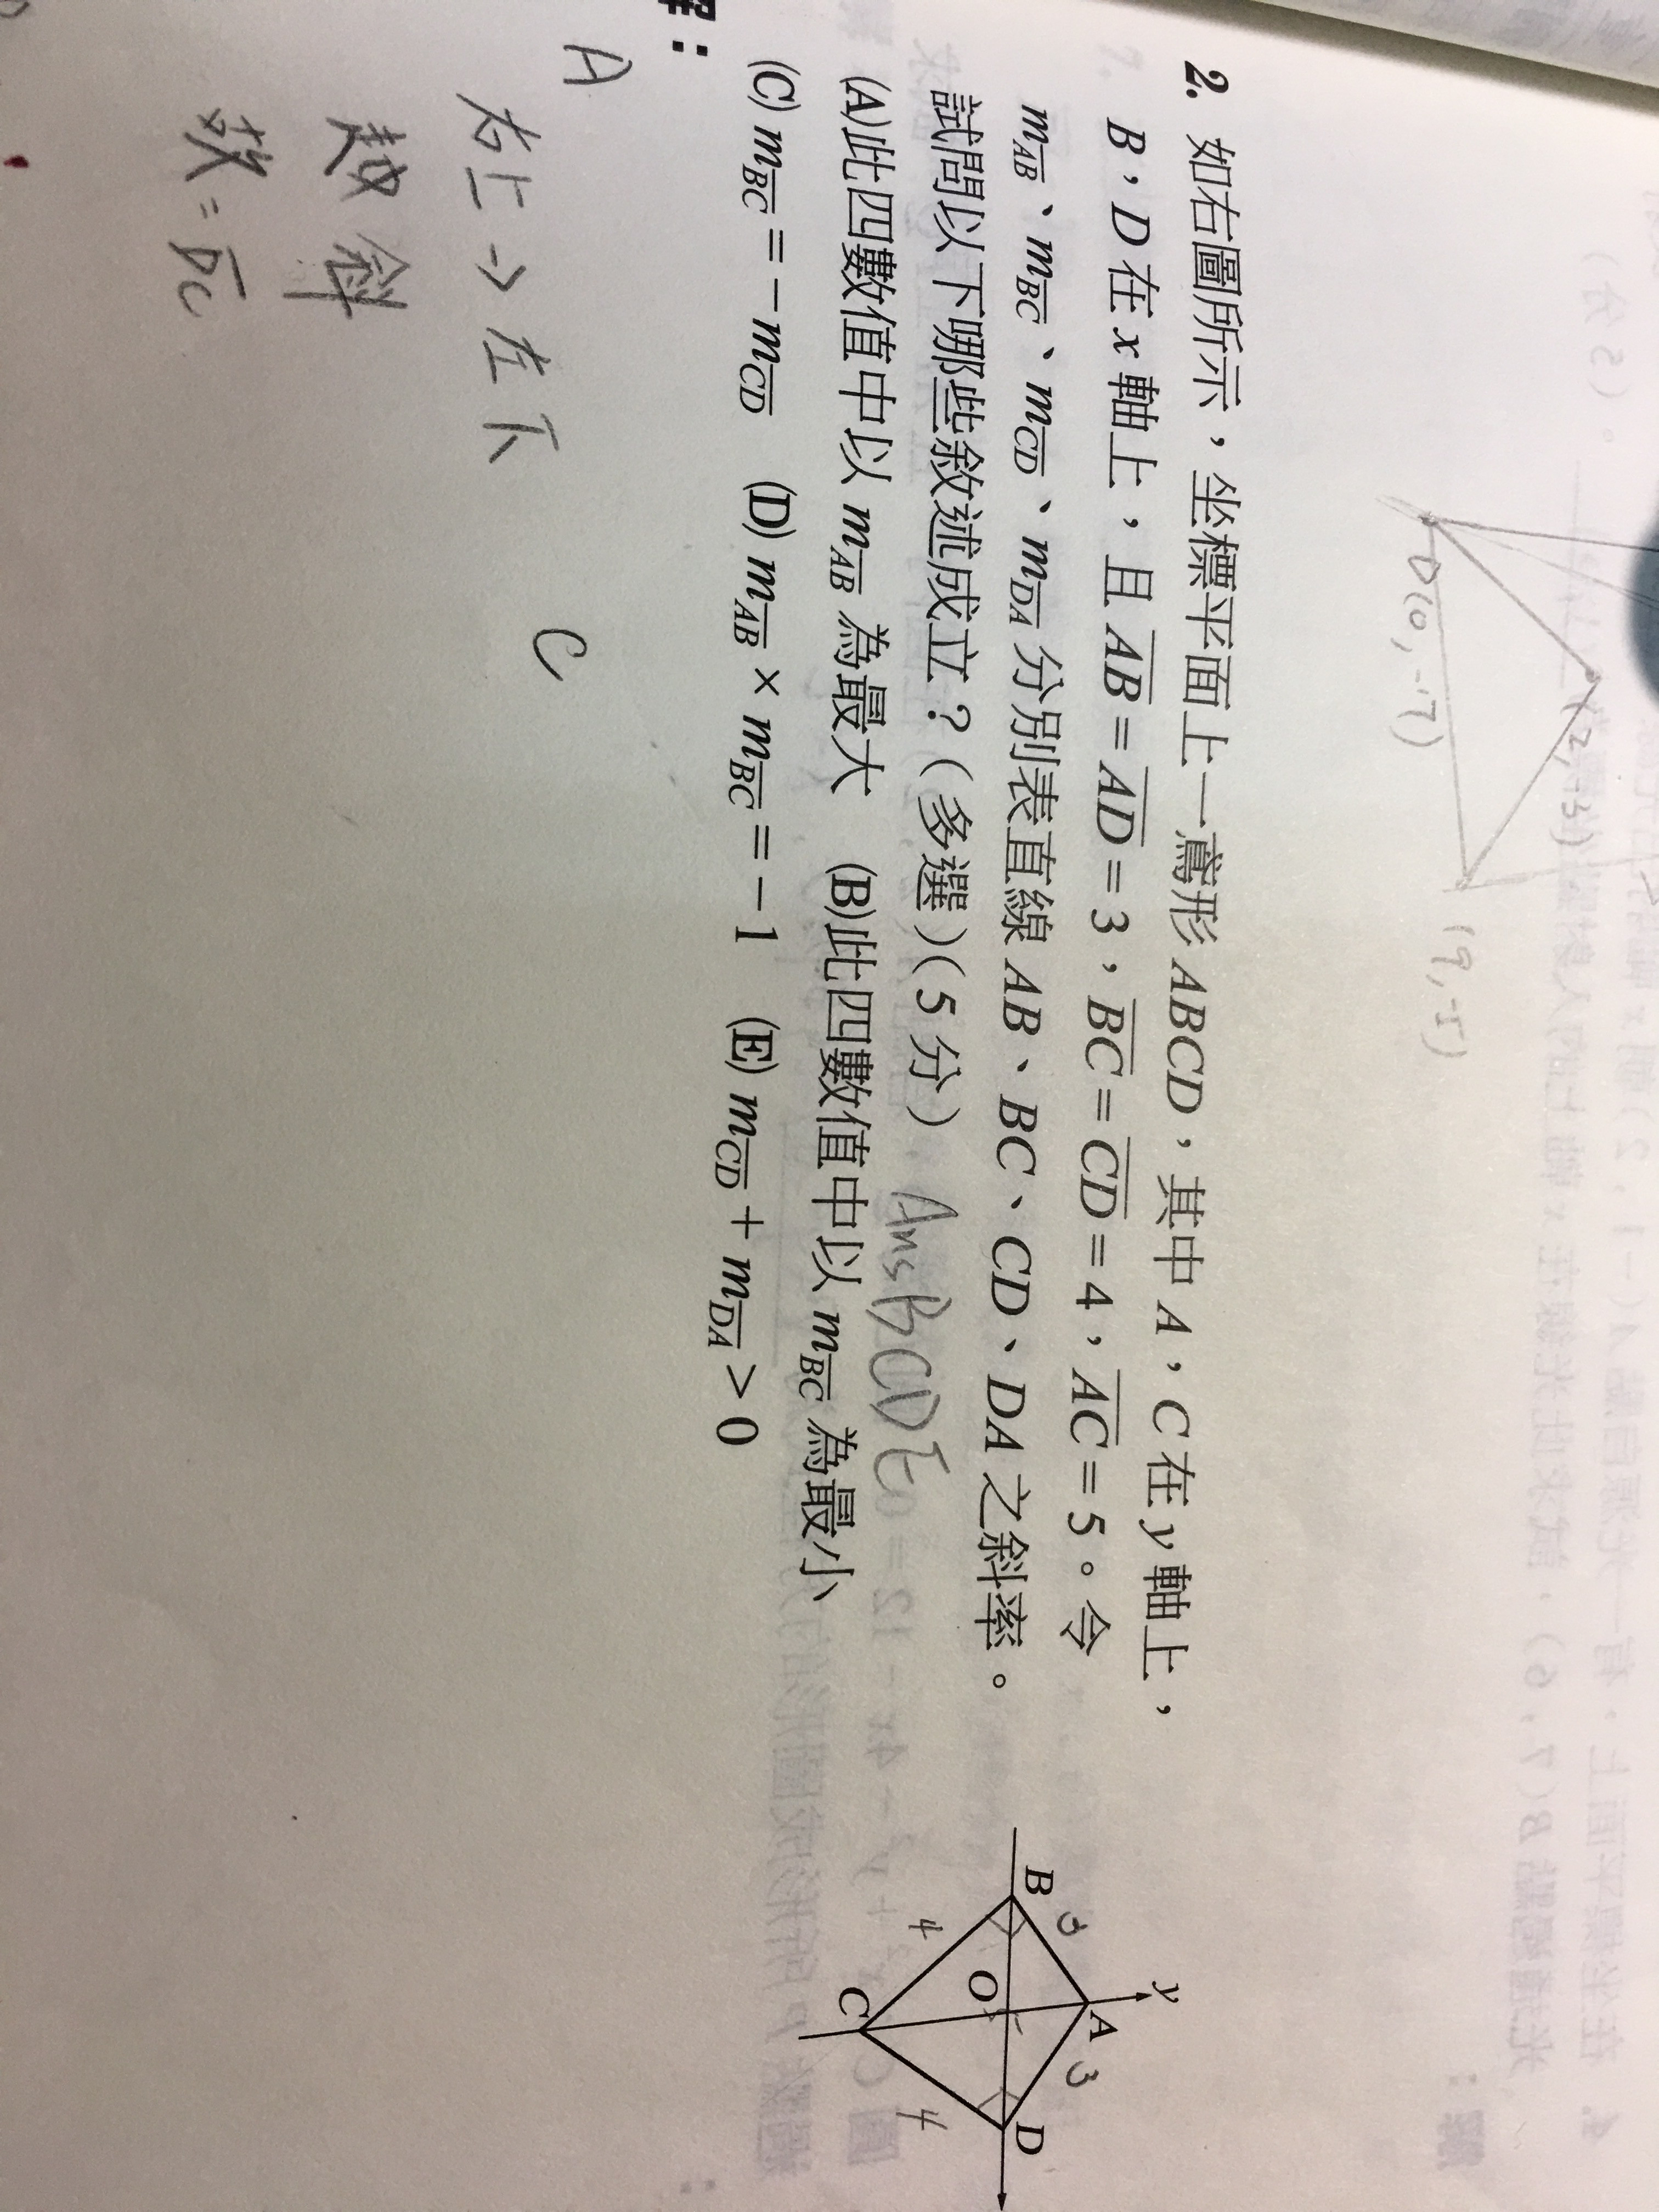 2. 如右圖所示，坐標平面上一鳶形 ABCD，其中 A，C 在 y 軸上，
B，D 在 x 軸上，且 AB = AD = 3，BC = CD = 4，AC = 5。令
m_AB、m_BC、m_CD、m_DA 分別表直線 AB、BC、CD、DA 之斜率。
試問以下哪些敘述成立？（多選）（5 分） Ans BCDE
(A)此四數值中以 m_AB 為最大 (B)此四數值中以 m_BC 為最小
(C) m_BC = − m_CD (D) m_AB × m_BC = − 1 (E) m_CD + m_DA > 0
解：
A
右上→左下
越斜
故 = DC
C
D(0, -7)
(2, -3)
(9, -5)
y
A
3
3
B
O
D
4
4
C